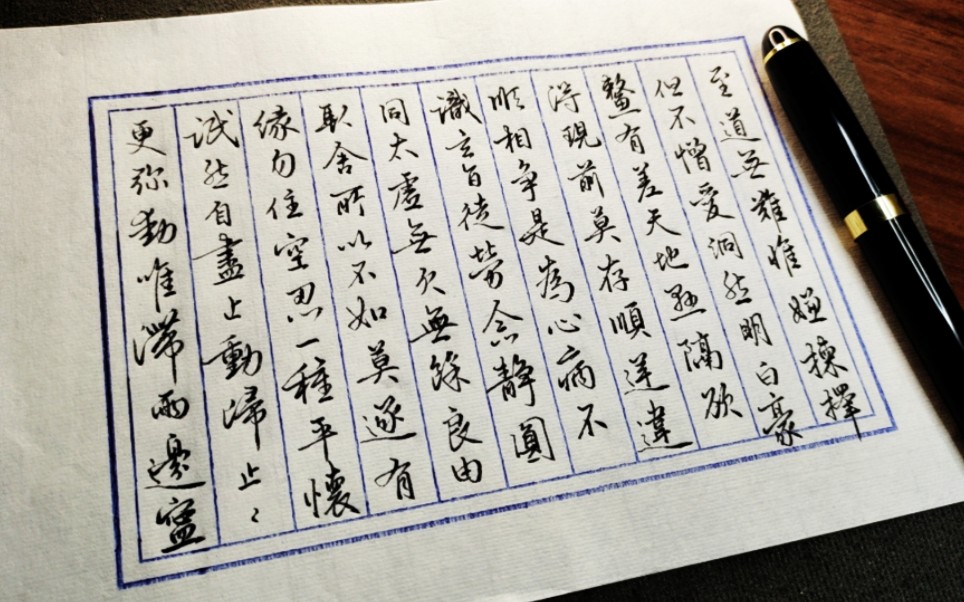 至道無難惟嫌揀擇
但不憎愛洞然明白豪
釐有差天地懸隔欲
得現前莫存順逆違
順相爭是為心病不
識玄旨徒勞念靜圓
同太虛無欠無餘良由
取舍所以不如莫逐有
緣勿住空忍一種平懷
泯然自盡止動歸止々
更弥動唯滯兩邊寧